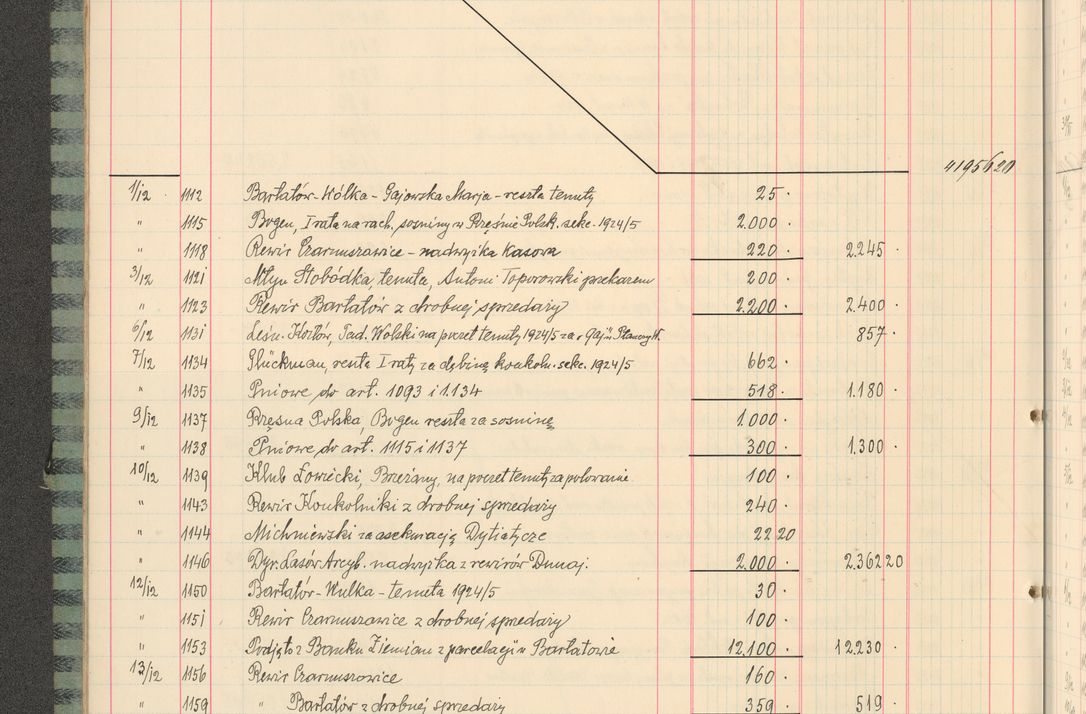 41956 20
1/12 · 1112 Bartatów-Wólka - Gajowska Marja - reszta tenuty 25 ·
" 1115 Bogen, I rata na rach. sosniny w Rzęśnie Polsk. sekc. 1924/5 2.000 ·
" 1118 Rewir Czarnuszowice - nadwyżka kasowa 220 · 2.245 ·
3/12 1121 Młyn Słobódka, tenuta, Antoni Toporowski przekazem 200 ·
" 1123 Rewir Bartatów z drobnej sprzedaży 2.200 · 2.400 ·
6/12 1131 Leśn. Kozłów, Tad. Wolski na poczet tenuty 1924/5 za 857 ·
7/12 1134 Glückman, reszta I raty za dębinę koukoln. sekc. 1924/5 662 ·
" 1135 Pniowe do art. 1093 i 1134 518 · 1.180 ·
9/12 1137 Rzęsna Polska, Bogen reszta za sosninę 1.000 ·
" 1138 Pniowe do art. 1115 i 1137 300 · 1.300 ·
10/12 1139 Klub Łowiecki, Brzeżany, na poczet tenuty za polowanie 100 ·
" 1143 Rewir Koukolniki z drobnej sprzedaży 240 ·
" 1144 Michniewski za asekurację Dytiatycze 22 20
" 1146 Dyr. Lasów Arcyb. nadwyżka z rewirów Dunaj. 2.000 · 2.362 20
12/12 1150 Bartatów - Wulka - tenuta 1924/5 30 ·
" 1151 Rewir Czarnuszowice z drobnej sprzedaży 100 ·
" 1153 Podjęto z Banku Ziemian z parcelacji w Bartatowie 12.100 · 12.230 ·
13/12 1156 Rewir Czarnuszowice 160 ·
" 1159 " Bartatów z drobnej sprzedaży 359 · 519 ·